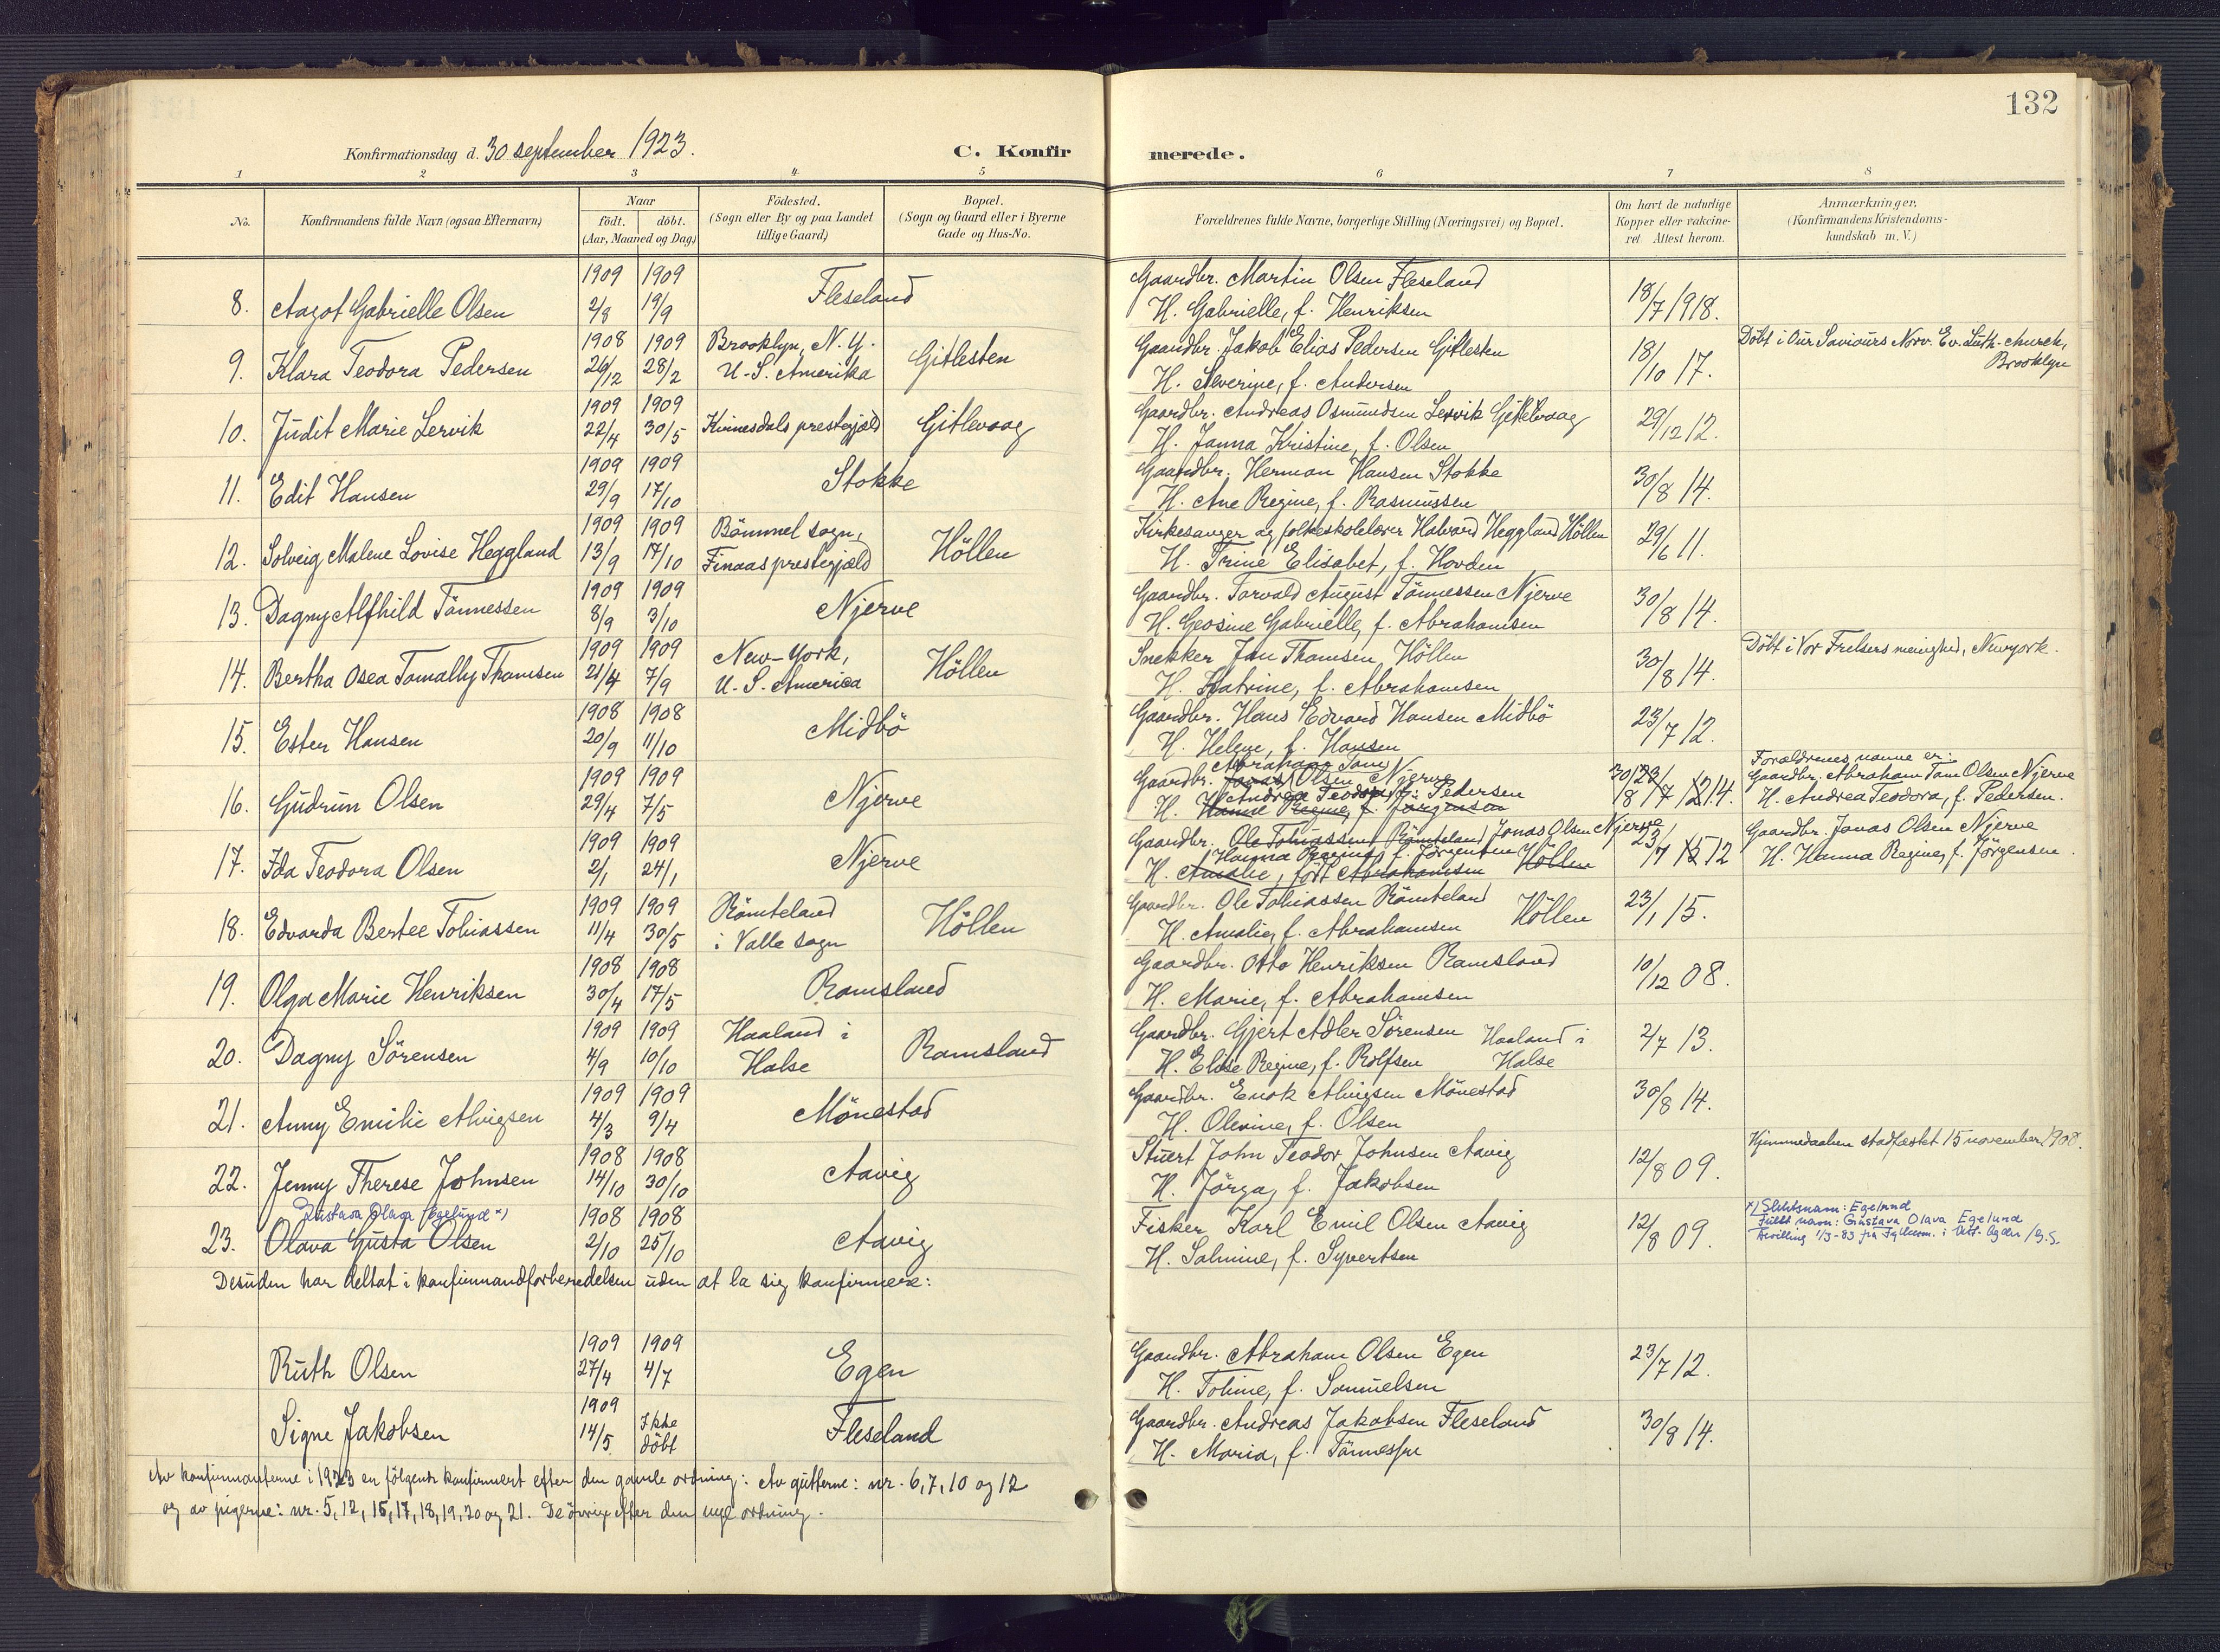 132
Konfirmationsdag d. 30 september 1923.
C. Konfirmerede.
1 2 3 4 5 6 7 8
No.
Konfirmandens fulde Navn (ogsaa Efternavn)
Naar
født. døbt.
(Aar, Maaned og Dag)
Födested.
(Sogn eller By og paa Landet
tillige Gaard)
Bopæl.
(Sogn og Gaard eller i Byerne
Gade og Hus-No.
Forældrenes fulde Navne, borgerlige Stilling (Næringsvei) og Bopæl.
Om havt de naturlige
Kopper eller vakcine-
ret Attest herom.
Anmærkninger.
(Konfirmandens Kristendoms-
kundskab m. V.)
8. Aagot Gabrielle Olsen 1909 2/8 1909 19/9 Fleseland
Gaardbr. Martin Olsen Fleseland
H. Gabrielle, f. Henriksen
18/7 1918.
9. Klara Teodora Pedersen 1908 26/12 1909 28/2 Brooklyn, N. Y.
U. S. Amerika Gitlesten
Gaardbr. Jakob Elias Pedersen Gitlesten
H. Severine, f. Andersen
18/10 17.
Döbt i Our Saviours Norv. Ev. Luth. church,
Brooklyn
10. Judit Marie Lervik 1909 22/4 1909 30/5 Kvinesdals prestegjæld Gitlevaag
Gaardbr. Andreas Osmundsen Lervik Gitlevaag
H. Janna Kristine, f. Olsen
29/12 12.
11. Edit Hansen 1909 29/9 1909 17/10 Stokke
Gaardbr. Herman Hansen Stokke
H. Ane Regine, f. Rasmussen
30/8 14.
12. Solveig Malene Lovise Heggland 1909 13/9 1909 17/10 Bömmel sogn,
Finaas prestegjæld Höllen
Kirkesanger og folkeskolelærer Halvard Heggland Höllen
H. Trine Elisabet, f. Hovden
29/6 11.
13. Dagny Alfhild Tönnessen 1909 8/9 1909 3/10 Njerve
Gaardbr. Torvald August Tönnessen Njerve
H. Geosine Gabrielle, f. Abrahamsen
30/8 14.
14. Bertha Osea Tomally Thomsen 1909 21/4 1909 7/9 New-York,
U. S. America Höllen
Snekker Jan Thomsen Höllen
H. Katrine, f. Abrahamsen
30/8 14.
Döbt i Vor Frelsers menighed, Newyork.
15. Ester Hansen 1908 20/9 1908 11/10 Midbö
Gaardbr. Hans Edvard Hansen Midbö
H. Helene, f. Hansen
23/7 12.
16. Gudrun Olsen 1909 29/4 1909 7/5 Njerve
Abraham Tom
Gaardbr. Jonas Olsen Njerve
Andrea Teodora f. Pedersen
H. Hanna Regine, f. Jörgensen
30/8 23/7 12 14.
Forældrenes navne er:
Gaardbr. Abraham Tom Olsen Njerve
H. Andrea Teodora, f. Pedersen.
17. Ida Teodora Olsen 1909 2/1 1909 24/1 Njerve
Gaardbr. Ole Tobiassen Römteland Jonas Olsen Njerve
Hanna Regine, f. Jörgensen
H. Amalie, född Abrahamsen Höllen
23/7 15 12
Gaardbr. Jonas Olsen Njerve
H. Hanna Regine, f. Jörgensen.
18. Edvarda Bertee Tobiassen 1909 11/4 1909 30/5 Römteland
i Valle sogn Höllen
Gaardbr. Ole Tobiassen Römteland
H. Amalie, f. Abrahamsen Höllen
23/1 15.
19. Olga Marie Henriksen 1908 30/4 1908 17/5 Ramsland
Gaardbr. Otto Henriksen Ramsland
H. Marie, f. Abrahamsen
10/12 08.
20. Dagny Sörensen 1909 4/9 1909 10/10 Haaland i
Halse Ramsland
Gaardbr. Gjert Adler Sörensen Haaland i
H. Elise Regine, f. Rolfsen Halse
2/7 13.
21. Anny Emilie Alvigsen 1909 4/3 1909 9/4 Mönestad
Gaardbr. Enok Alvigsen Mönestad
H. Olevine, f. Olsen
30/8 14.
22. Jenny Therese Johnsen 1908 14/10 1908 30/10 Aavig
Stuert John Teodor Johnsen Aavig
H. Jörga, f. Jakobsen
12/8 09.
Hjemmedaaben stadfæstet 15 november 1908.
Gustava Olava Egelund *)
23. Olava Gusta Olsen 1908 2/10 1908 25/10 Aavig
Fisker Karl Emil Olsen Aavig
H. Salmine, f. Syvertsen
12/8 09.
*) Slektsnavn: Egelund
Fullt navn: Gustava Olava Egelund
Bevilling 1/3-83 fra Fylkesm. i Vest-Agder /B.S.
Desuden har deltat i konfirmandforberedelsen uden at la sig konfirmere:
Ruth Olsen 1909 27/4 1909 4/7 Egen
Gaardbr. Abraham Olsen Egen
H. Toline, f. Samuelsen
23/7 12.
Signe Jakobsen 1909 14/5 Ikke
döbt Fleseland
Gaardbr. Andreas Jakobsen Fleseland
H. Maria, f. Tönnessen
30/8 14.
Av konfirmanterne i 1923 er fölgende konfirmert efter den gamle ordning: Av gutterne: nr. 6, 7, 10 og 12
og av pigerne: nr. 5, 12, 16, 17, 18, 19, 20 og 21. De övrige efter den nye ordning.